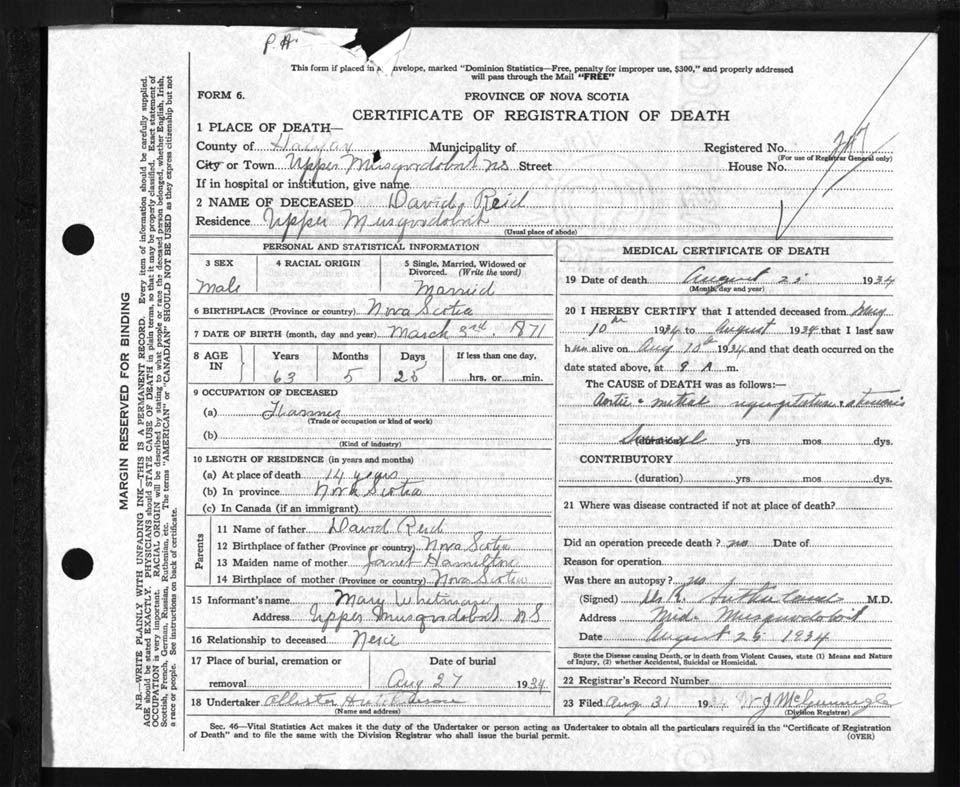 P.A.
This form if placed in envelope, marked "Dominion Statistics—Free, penalty for improper use, $300," and properly addressed
will pass through the Mail "FREE"
FORM 6.
PROVINCE OF NOVA SCOTIA
CERTIFICATE OF REGISTRATION OF DEATH
1 PLACE OF DEATH—
County of Halifax Municipality of Registered No.
(For use of Registrar General only)
City or Town Upper Musquodoboit NS Street House No.
If in hospital or institution, give name
2 NAME OF DECEASED David Reid
Residence Upper Musquodoboit
(Usual place of abode)
PERSONAL AND STATISTICAL INFORMATION
3 SEX
Male
4 RACIAL ORIGIN
5 Single, Married, Widowed or
Divorced. (Write the word)
Married
6 BIRTHPLACE (Province or country) Nova Scotia
7 DATE OF BIRTH (month, day and year) March 3rd. 1871
8 AGE
IN
Years Months Days If less than one day,
63 5 hrs. or min.
9 OCCUPATION OF DECEASED
(a)
(Trade or occupation or kind of work)
(b)
(Kind of industry)
10 LENGTH OF RESIDENCE (in years and months)
(a) At place of death 14 years
(b) In province Nova Scotia
(c) In Canada (if an immigrant)
Parents
11 Name of father David Reid
12 Birthplace of father (Province or country) Nova Scotia
13 Maiden name of mother Janet Hamilton
14 Birthplace of mother (Province or country) Nova Scotia
15 Informant's name Mary Whitman
Address Upper Musquodoboit NS
16 Relationship to deceased Neice
17 Place of burial, cremation or
removal
Date of burial
Aug 27 1934
18 Undertaker
(Name and address)
MEDICAL CERTIFICATE OF DEATH
19 Date of death August 1934
(Month, day and year)
20 I HEREBY CERTIFY that I attended deceased from
10th 1934 to August 1934 that I last saw
him alive on Aug 1934 and that death occurred on the
date stated above, at 9 A. m.
The CAUSE of DEATH was as follows:—
Aortic & mitral regurgitation
Several (duration) yrs. mos. dys.
CONTRIBUTORY
(duration) yrs. mos. dys.
21 Where was disease contracted if not at place of death?
Did an operation precede death? no Date of
Reason for operation
Was there an autopsy? no
(Signed) Sutherland M.D.
Address Mid. Musquodoboit
Date August 25 1934
State the Disease causing Death, or in death from Violent Causes, state (1) Means and Nature
of Injury, (2) whether Accidental, Suicidal or Homicidal.
22 Registrar's Record Number
23 Filed Aug 31 19
(Division Registrar)
Sec. 46—Vital Statistics Act makes it the duty of the Undertaker or person acting as Undertaker to obtain all the particulars required in the "Certificate of Registration
of Death" and to file the same with the Division Registrar who shall issue the burial permit. (OVER)
MARGIN RESERVED FOR BINDING
N.B.—WRITE PLAINLY WITH UNFADING INK—THIS IS A PERMANENT RECORD. Every item of information should be carefully supplied.
AGE should be stated EXACTLY. PHYSICIANS should STATE CAUSE OF DEATH in plain terms, so that it may be properly classified. Exact statement of
OCCUPATION is very important. RACIAL ORIGIN will be described by stating to what people or race the deceased person belonged, whether English, Irish,
Scottish, French, German, Russian, Ruthenian, etc. The terms "AMERICAN" or "CANADIAN" SHOULD NOT BE USED as they express citizenship but not
a race or people. See instructions on back of certificate.